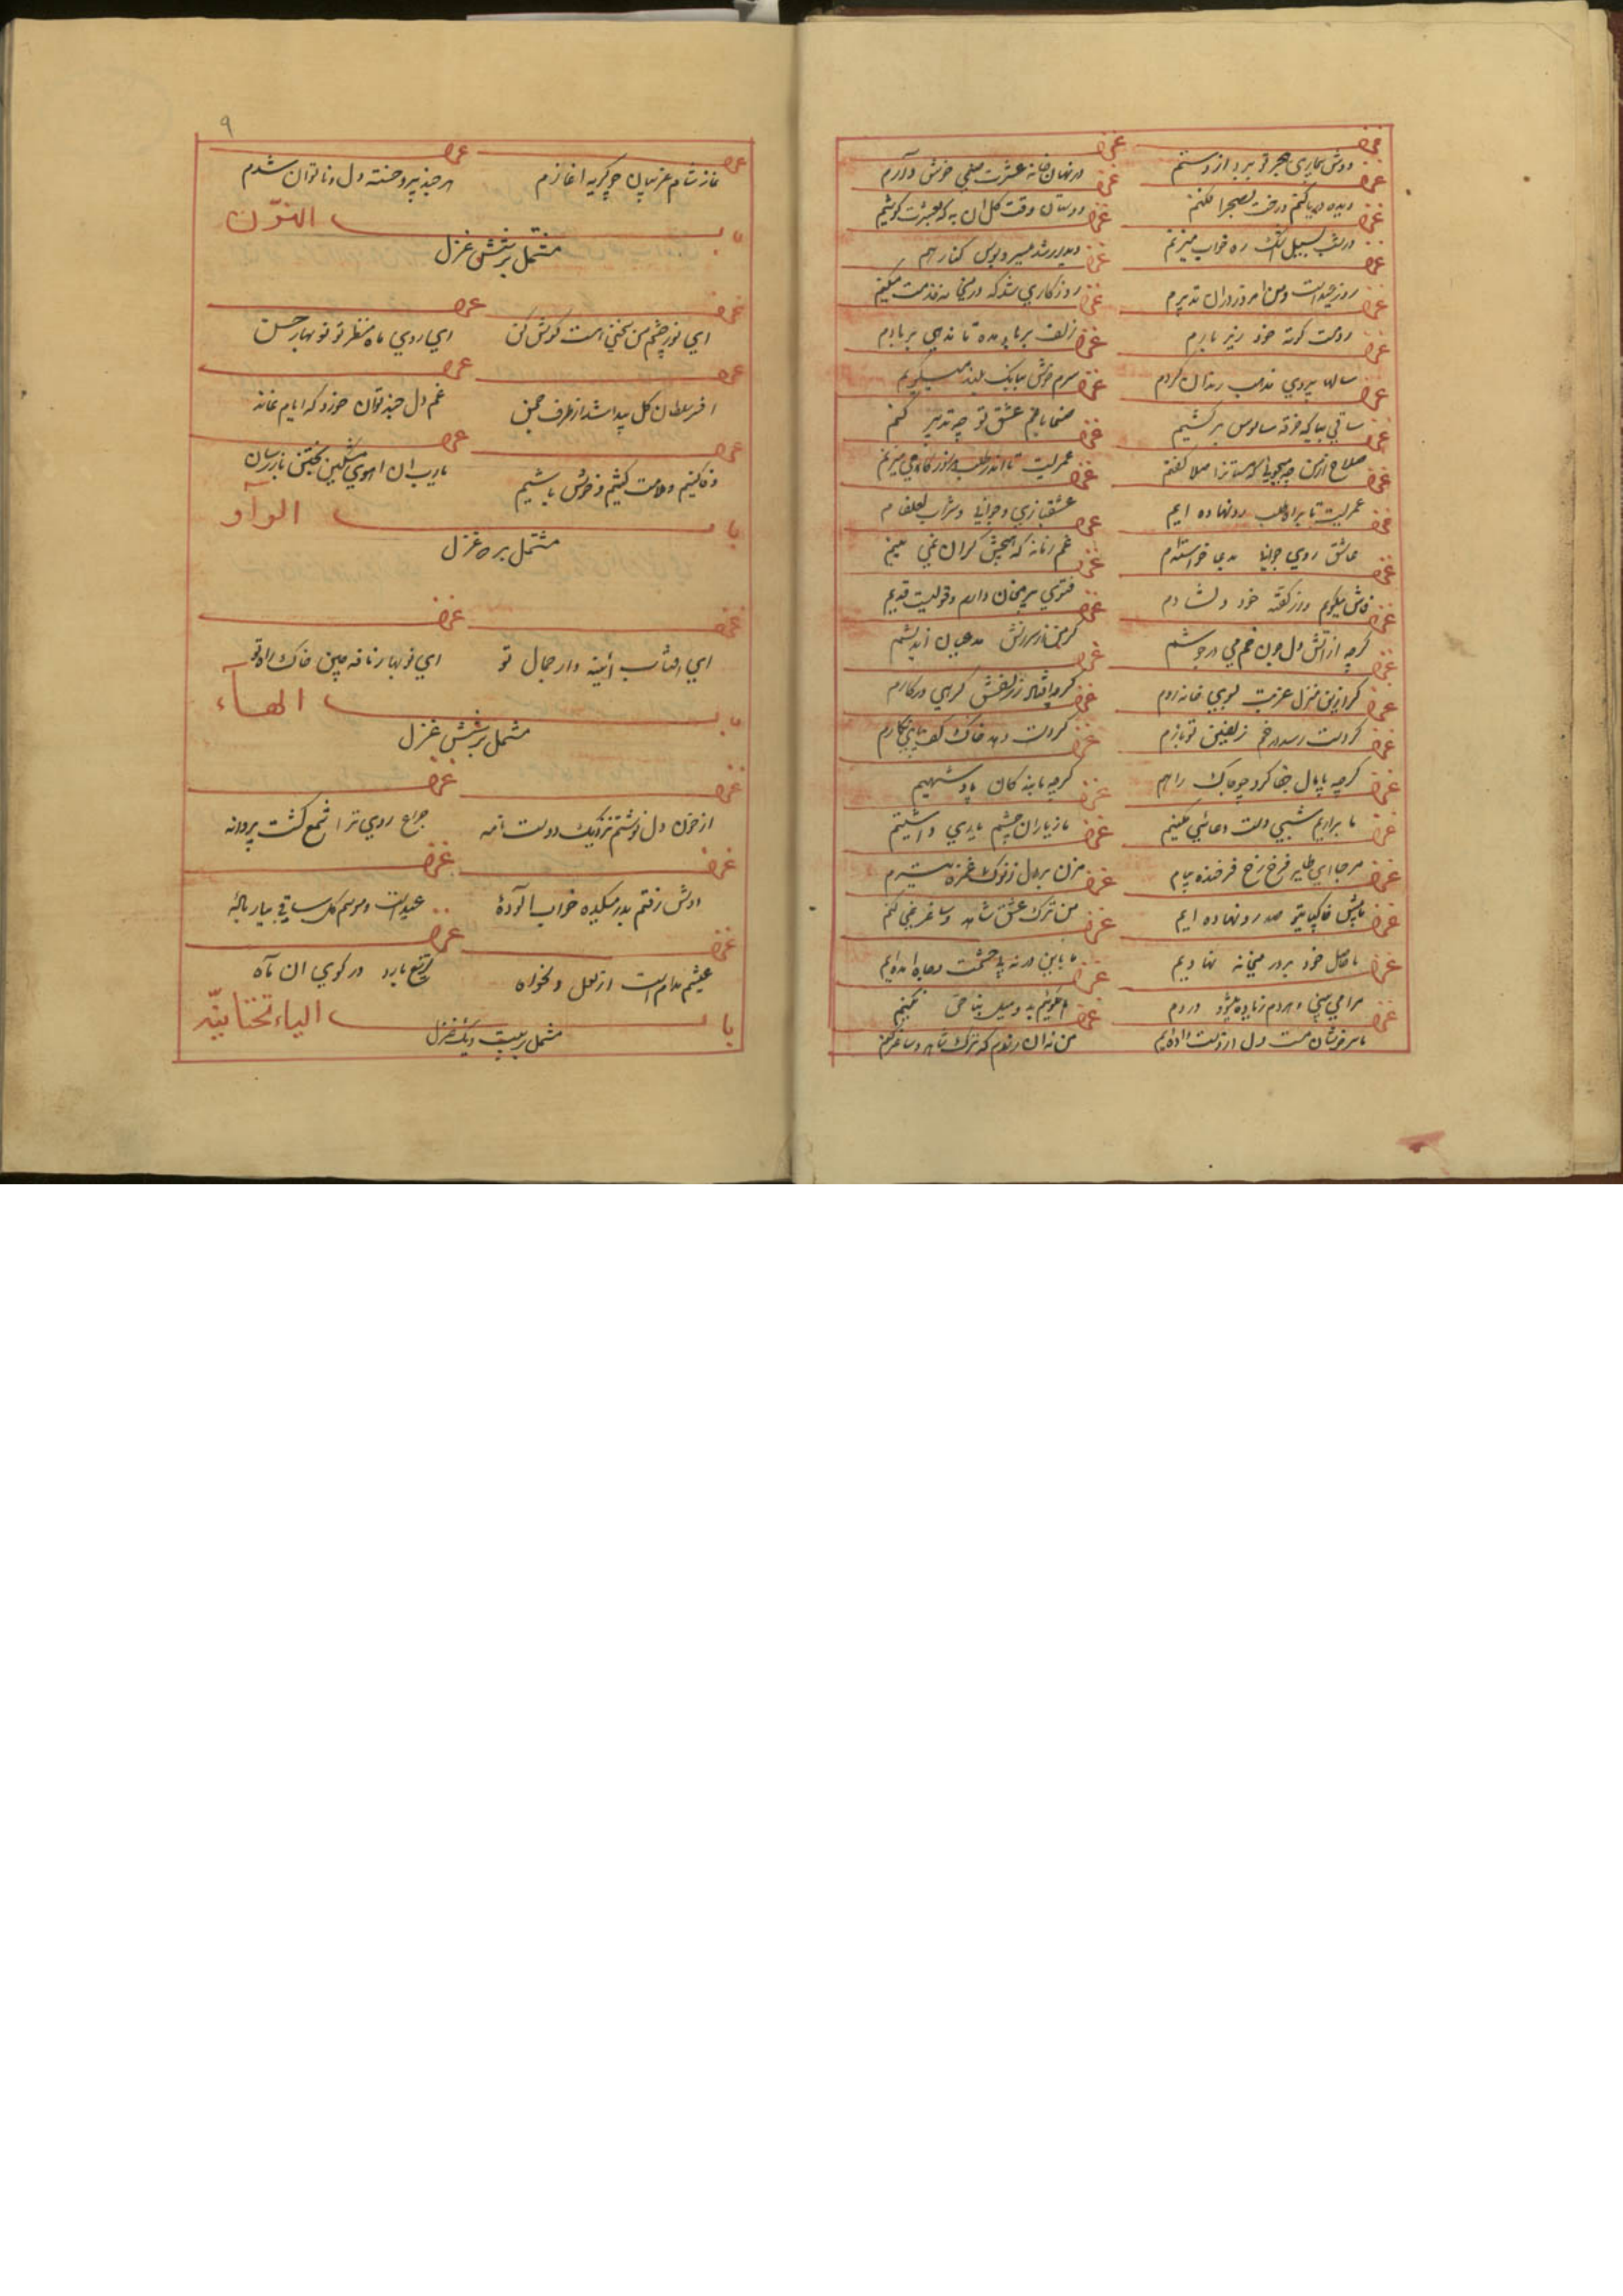 غزل غزل
دوش بیماری هجر تو ببرد از دستم در نهان خانه عشرت صنمی خوش دارم
غزل غزل
دیده دریا کنم و رخت بصحرا فکنم دوستان وقت کل ان به که بعشرت کوشیم
غزل غزل
در شب سیل اشک ره خواب میزنم دیدار شد میسر و بوس کنار هم
غزل غزل
روز عیدست و من امروز در ان تدبیرم روزکاری شد که در میخانه خدمت میکنم
غزل غزل
زلف بر باد مده تا ندهی بر بادم
غزل غزل
سالها پیروی مذهب رندان کردم سرم خوش ببانک بلند میکویم
غزل غزل
ساقی بیا که خرقه سالوس برکشیم صنما با غم عشق تو چه تدبیر کنم
غزل غزل
صلاح از من چه میجویی که مستانرا صلا کفتم عمریست تا اندر طلب هر روز کامی میزنم
غزل غزل
عمریست تا براه طلب رو نهاده ایم عشقبازی و جوانی و شراب لعلفام
غزل غزل
عاشق روی جوانی غم زمانه که هیچش کران نمی بینم
غزل غزل
فاش میکویم و از کفته خود دلشادم فتوی پیر مغان دارم و قولیست قدیم
غزل غزل
کرچه از اتش دل چون خم می در جوشم کر من از سرزنش مدعیان اندیشم
غزل غزل
کر ازین منزل غربت بسوی خانه روم کرچه افتاد ز زلفش کرهی در کارم
غزل غزل
کر دست رسد در خم زلفین تو بازم کر دست دهد خاک کف پای نکارم
غزل غزل
کرچه پایمال جفا کرد چو خاک راهم کرچه ما بنده کان پادشهیم
غزل غزل
ما براریم شبی دست و دعائی بکنیم ما ز یاران چشم یاری داشتیم
غزل غزل
مرحبا ای طایر فرخ رخ فرخنده پیام مزن بر دل ز نوک غمزه تیرم
غزل غزل
ما پیش خاکپای تو صد رو نهاده ایم من ترک عشق شاهد و ساغر نمی کنم
غزل غزل
ما حاصل خود بر در میخانه نهادیم ما بدین در نه پی حشمت و جاه امده ایم
غزل غزل
مرا می بینی و هر دم زیاده میکنی دردم ما نکوئیم بد و میل بناحق نکنیم
ما سرخوشان مست دل از دست داده ایم من نه ان رندم که ترک شاهد و ساغر کنم
۹
غزل غزل
نماز شام غریبان چو کریه اغازم هر چند پیر و خسته دل و ناتوان شدم
باب النون
مشتمل بر شش غزل
غزل غزل
ای نور چشم من سخنی است کوش کن ای روی ماه منظر تو نو بهار حسن
غزل غزل
افسر سلطان کل پیدا شد از طرف چمن غم دل چند توان خورد که ایام نماند
غزل غزل
وفا کنیم و ملامت کشیم و خوش باشیم یارب ان اهوی مشکین بختن باز رسان
باب الواو
مشتمل بر ده غزل
غزل غزل
ای افتاب آئینه دار جمال تو ای نو بهار نافه چین خاک راه تو
باب الهاء
مشتمل بر شش غزل
غزل غزل
از خون دل نوشتم نزدیک دوست نامه چراغ روی ترا شمع کشت پروانه
غزل غزل
دوش رفتم بدر میکده خواب الوده عیدست و موسم کل ساقی بیار باده
غزل غزل
عیشم مدام است از لعل دلخواه کر تیغ بارد در کوی ان ماه
باب الیاء تحتانیه
مشتمل بر بیست و یک غزل